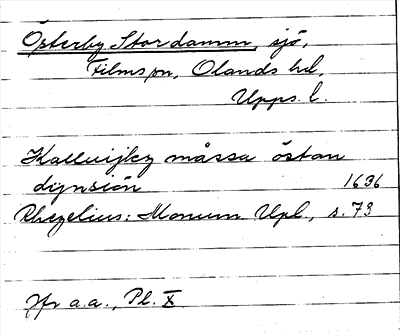 Österby Stordamm, sjö,
Films sn, Olands hd,
Upps. l.
Kalluijkz måssa östan
dynsiön 1636
Rhezelius: Monum Upl., s. 73
Jfr a.a., Pl. X